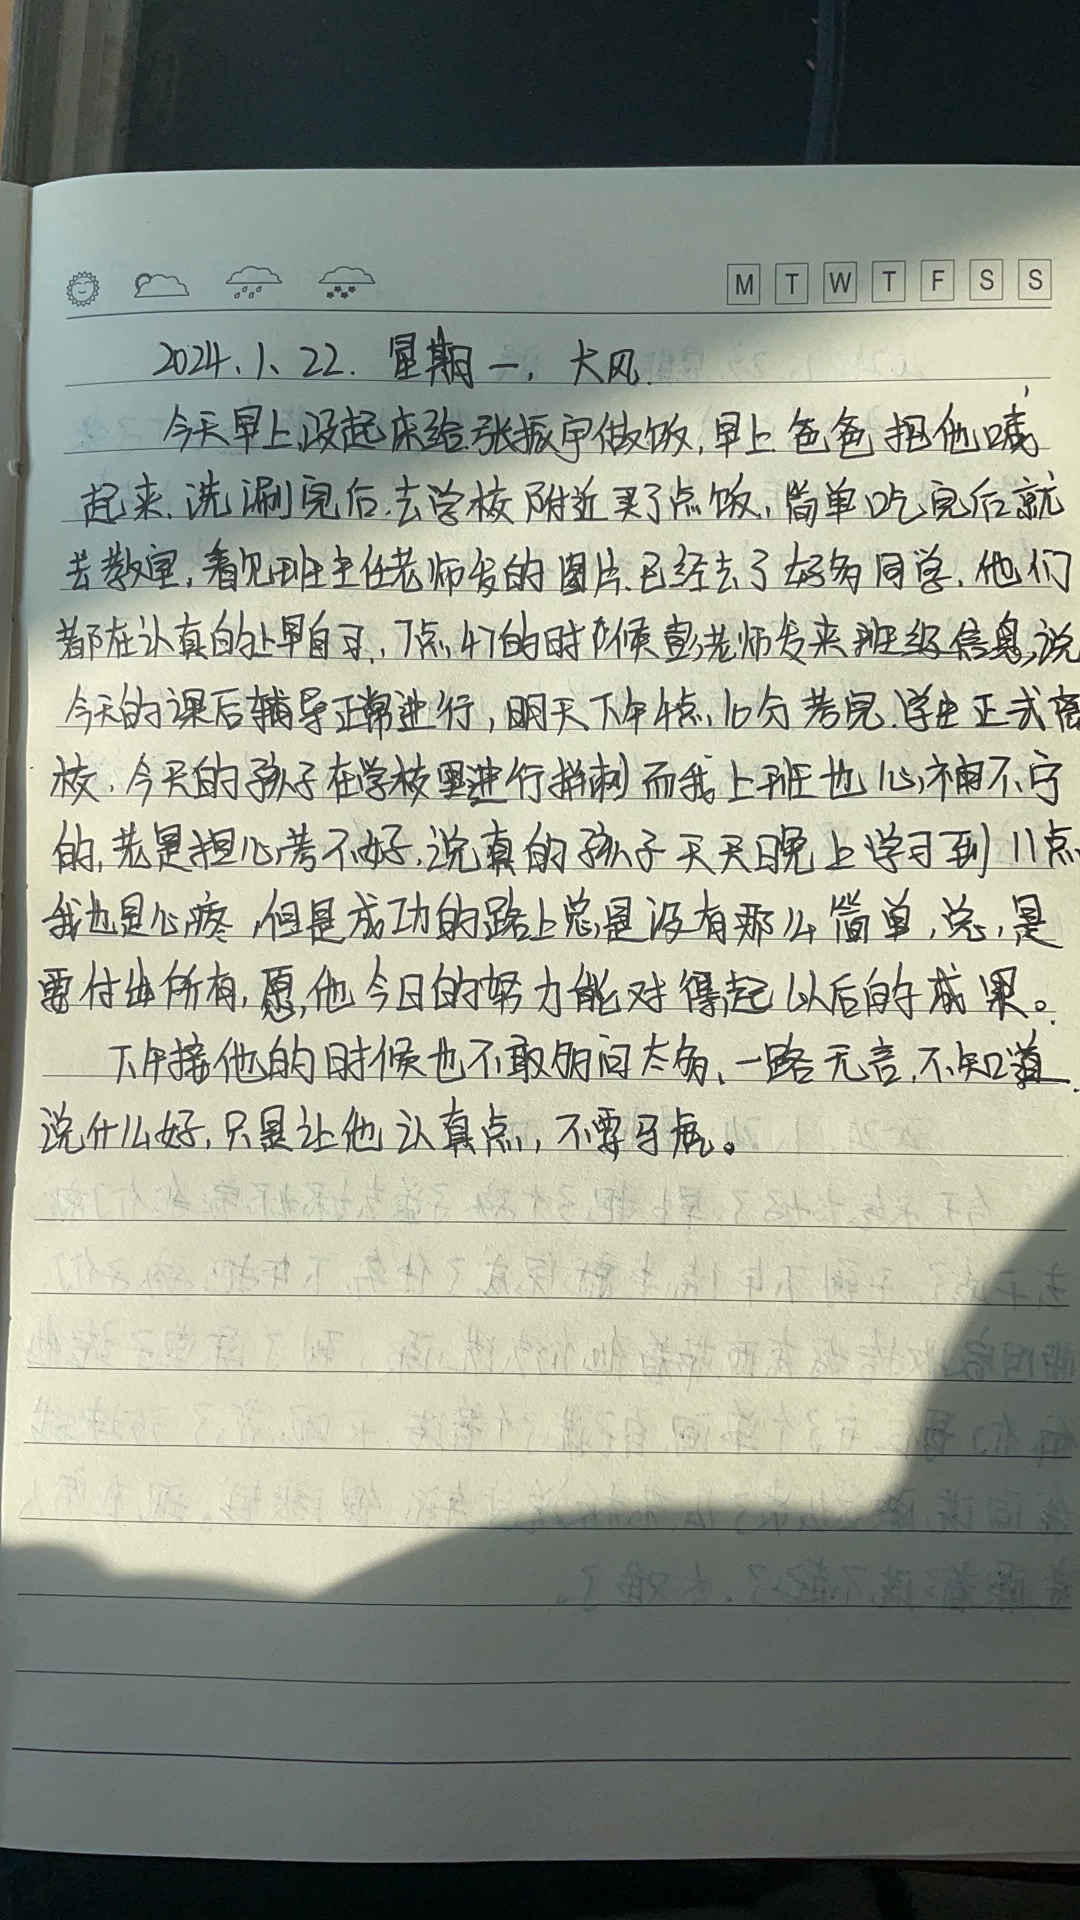 M T W T F S S
2024.1.22. 星期一. 大风.
今天早上没起床给张振宇做饭,早上爸爸把他喊,
起来.洗涮完后.去学校附近买了点饭,简单吃完后就
去教室,看见班主任老师发的图片已经去了好多同学.他们
都在认真的上早自习.7点47的时候彭老师发来班级信息,说
今天的课后辅导正常进行,明天下午4点,10分考完.学生正式离
校.今天的孩子在学校里进行拼刺而我上班也心神不宁
的,老是担心考不好.说真的孩子天天晚上学习到11点
我也是心疼,但是成功的路上总是没有那么简单,总,是
需付出所有,愿,他今日的努力能对得起以后的成果。
下午接他的时候也不敢明问太多,一路无言,不知道
说什么好,只是让他认真点,不要马虎。